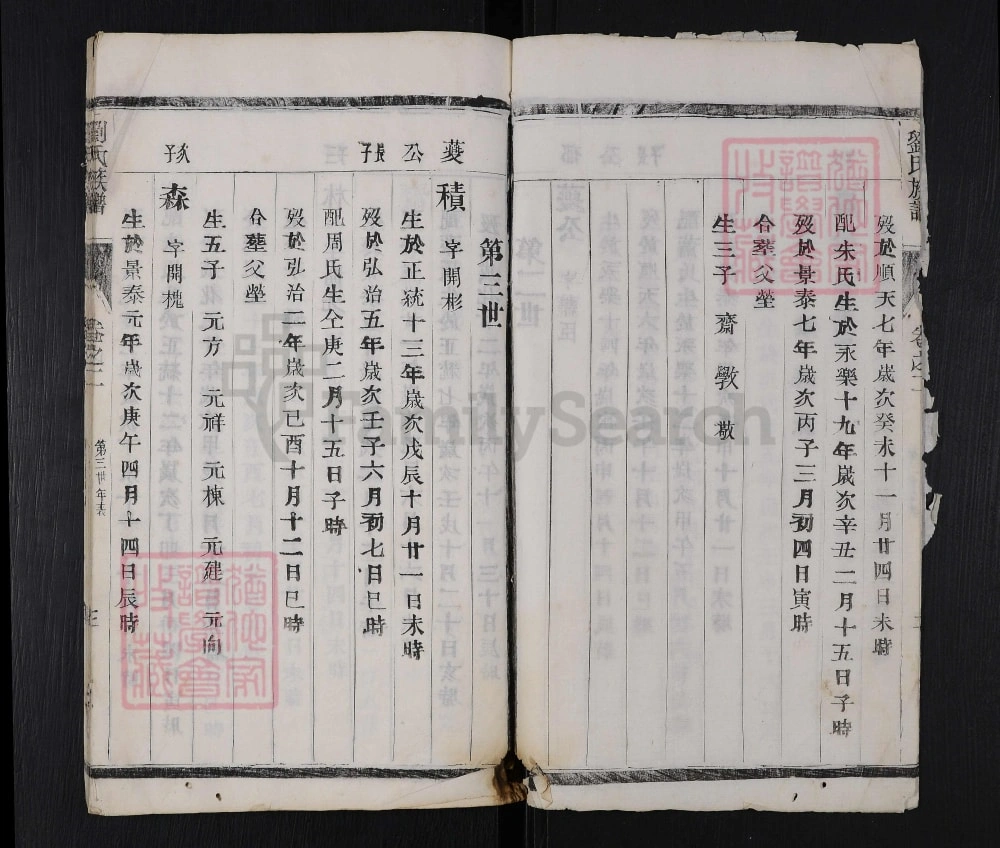 歿於順天七年歲次癸未十一月廿四日未時
配朱氏生於永樂十九年歲次辛丑二月十五日子時
歿於景泰七年歲次丙子三月初四日寅時
合塟父塋
生三子 齋 斆 敬
第三世
夔公長子
積 字開彬
生於正統十三年歲次戊辰十月廿一日未時
歿於弘治五年歲次壬子六月初七日巳時
配周氏生仝庚二月十五日子時
歿於弘治二年歲次己酉十月十二日巳時
合塟父塋
生五子 元方 元祥 元棟 元建 元向
次子
森 字開槐
生於景泰元年歲次庚午四月十四日辰時
劉氏族譜
卷之二
第三世年表
劉氏族譜
卷之二
FamilySearch